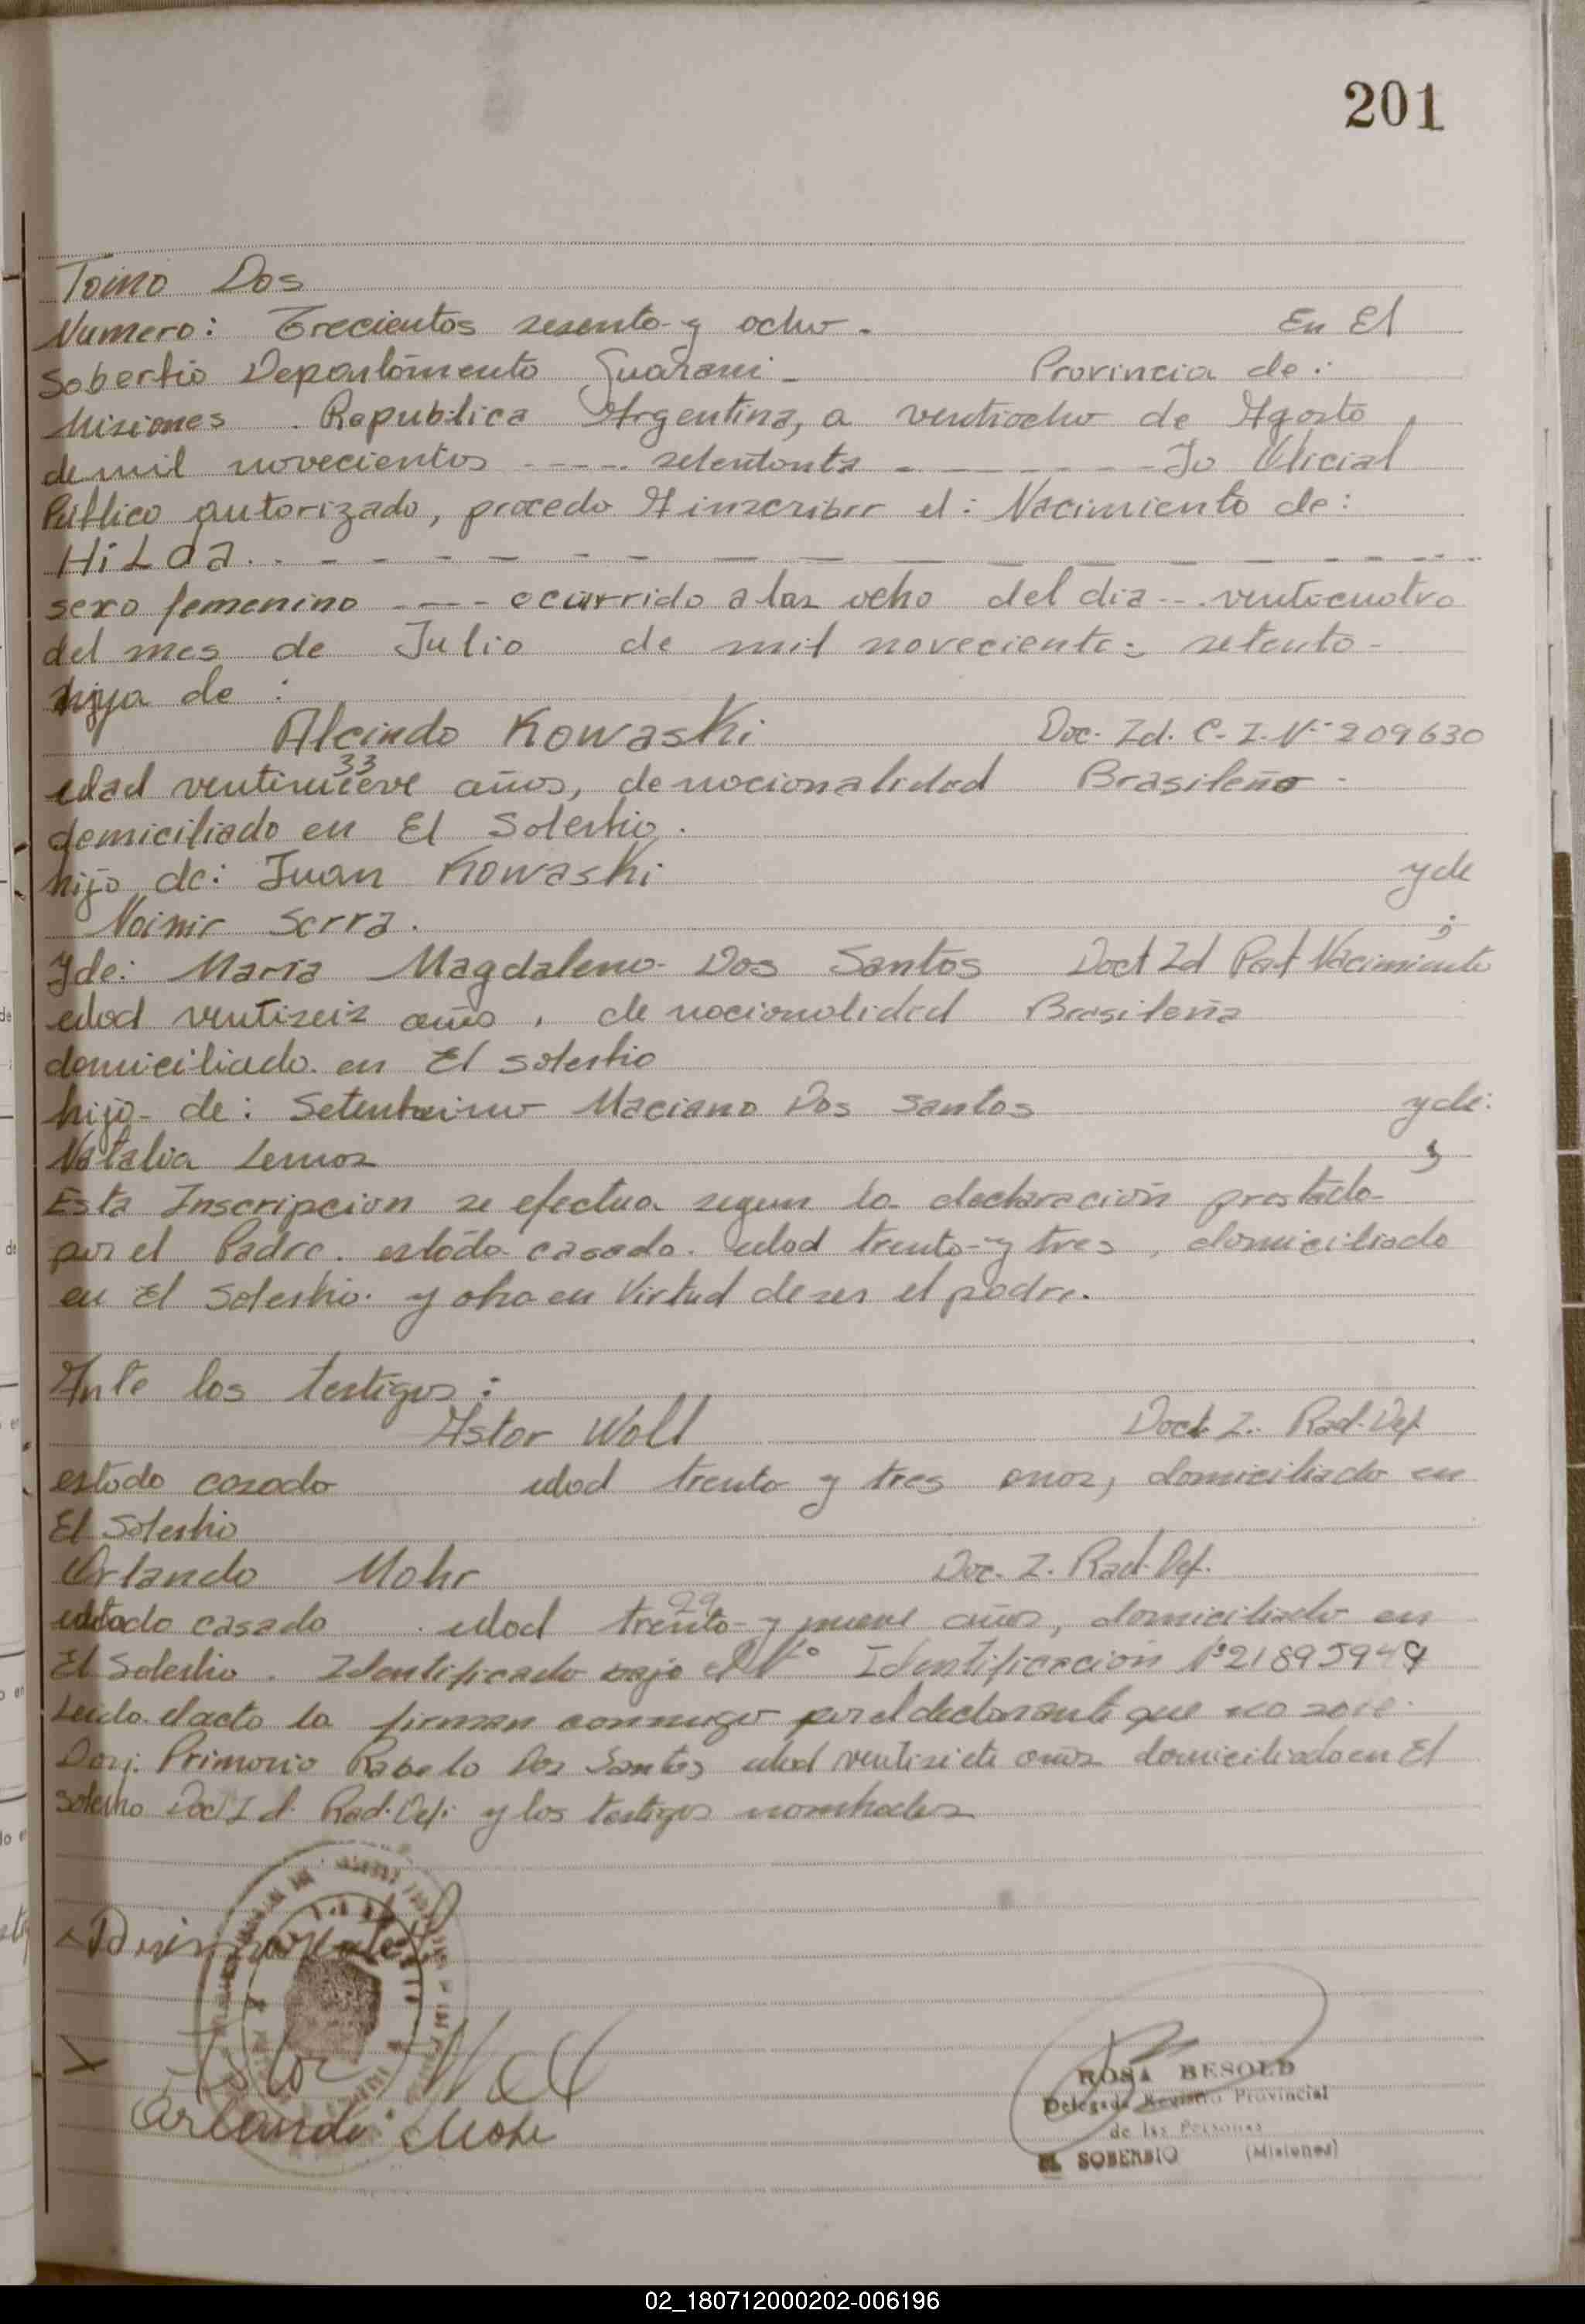 201
Tomo Dos
Numero: Trecientos sesenta y ocho. En El
Soberbio Departamento Guarani - Provincia de:
Misiones. Republica Argentina, a ventiocho de Agosto
de mil novecientos ---- setentonta ------ Jo Oficial
Publico autorizado, procedo A inscribir el: Nacimiento de:
HiLda. - - - - - - - - - - - -
sexo femenino ---- ocurrido a las ocho del dia -- venticuatro
del mes de Julio de mil novecientos setenta -
hija de:
Alcindo Kowaski Doc. Id. C. I. Nº 209630
33
edad ventinueve años, de nacionalidad Brasileño -
domiciliado en El Soberbio.
hijo de: Juan Kowaski y de
Serra. ;
Yde: Maria Magdalena Dos Santos Doct Id Part Nacimiento
edad ventiseis años, de nacionalidad Brasileña
domiciliado en El Soberbio
hija de: Maciano Dos Santos y de:
Natalia Lemos ;
Esta Inscripcion se efectua segun la declaración prestada
por el Padre. estado casado. edad trenta y tres, domiciliado
en El Soberbio. y obra en Virtud de ser el padre.
Ante los testigos:
Astor Woll Doct. I. Rad. Def
estado casado edad trenta y tres anos, domiciliado en
El Soberbio
Orlando Mohr Doc. I. Rad. Def.
29
estado casado edad trenta y nueve años, domiciliado en
El Soberbio. Identificado bajo el Nº Identificación Nº 21895949
Leida el acto la firman conmigo por el declarante que no sabe
Primorio Rabelo Dos Santos edad ventisiete años domiciliado en El
Soberbio Doc I d. Rad. Def. y los testigos nombrados
Astor Woll
Orlando Mohr
ROSA BESOLD
Delegada Registro Provincial
de las Personas
EL SOBERBIO (Misiones)
02_180712000202-006196